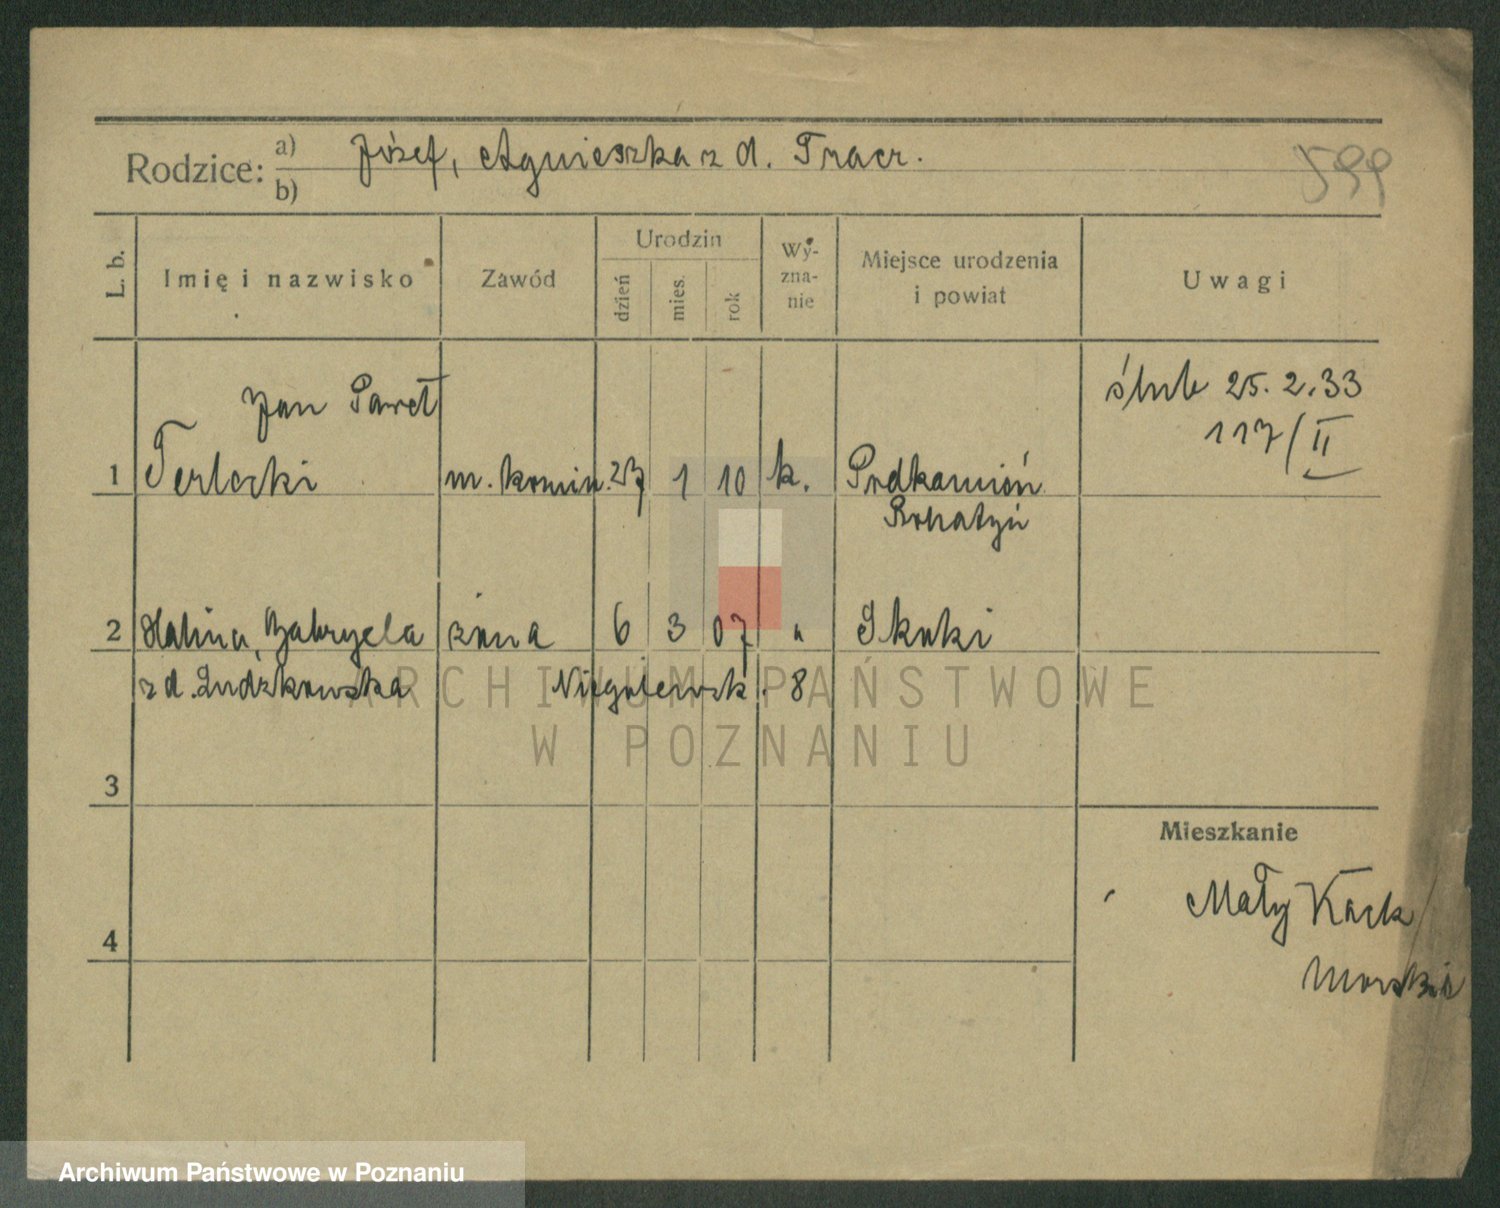 Rodzice: a) Józef, Agnieszka z d. Tracz.
b)
599
L. b. Imię i nazwisko Zawód Urodzin dzień mies. rok Wy-zna-nie Miejsce urodzenia i powiat Uwagi
Jan Paweł
ślub 25.2.33
117/II
1 Terlecki m. komin. 27 1 10 k. Podkamień
Rohatyń
2 Halina, Gabryela żona 6 3 07 " Skoki
z d. Ludzkowska Niegolewsk. 8
3
Mieszkanie
Mały Kack
Morskie
4
ARCHIWUM PAŃSTWOWE
W POZNANIU
Archiwum Państwowe w Poznaniu